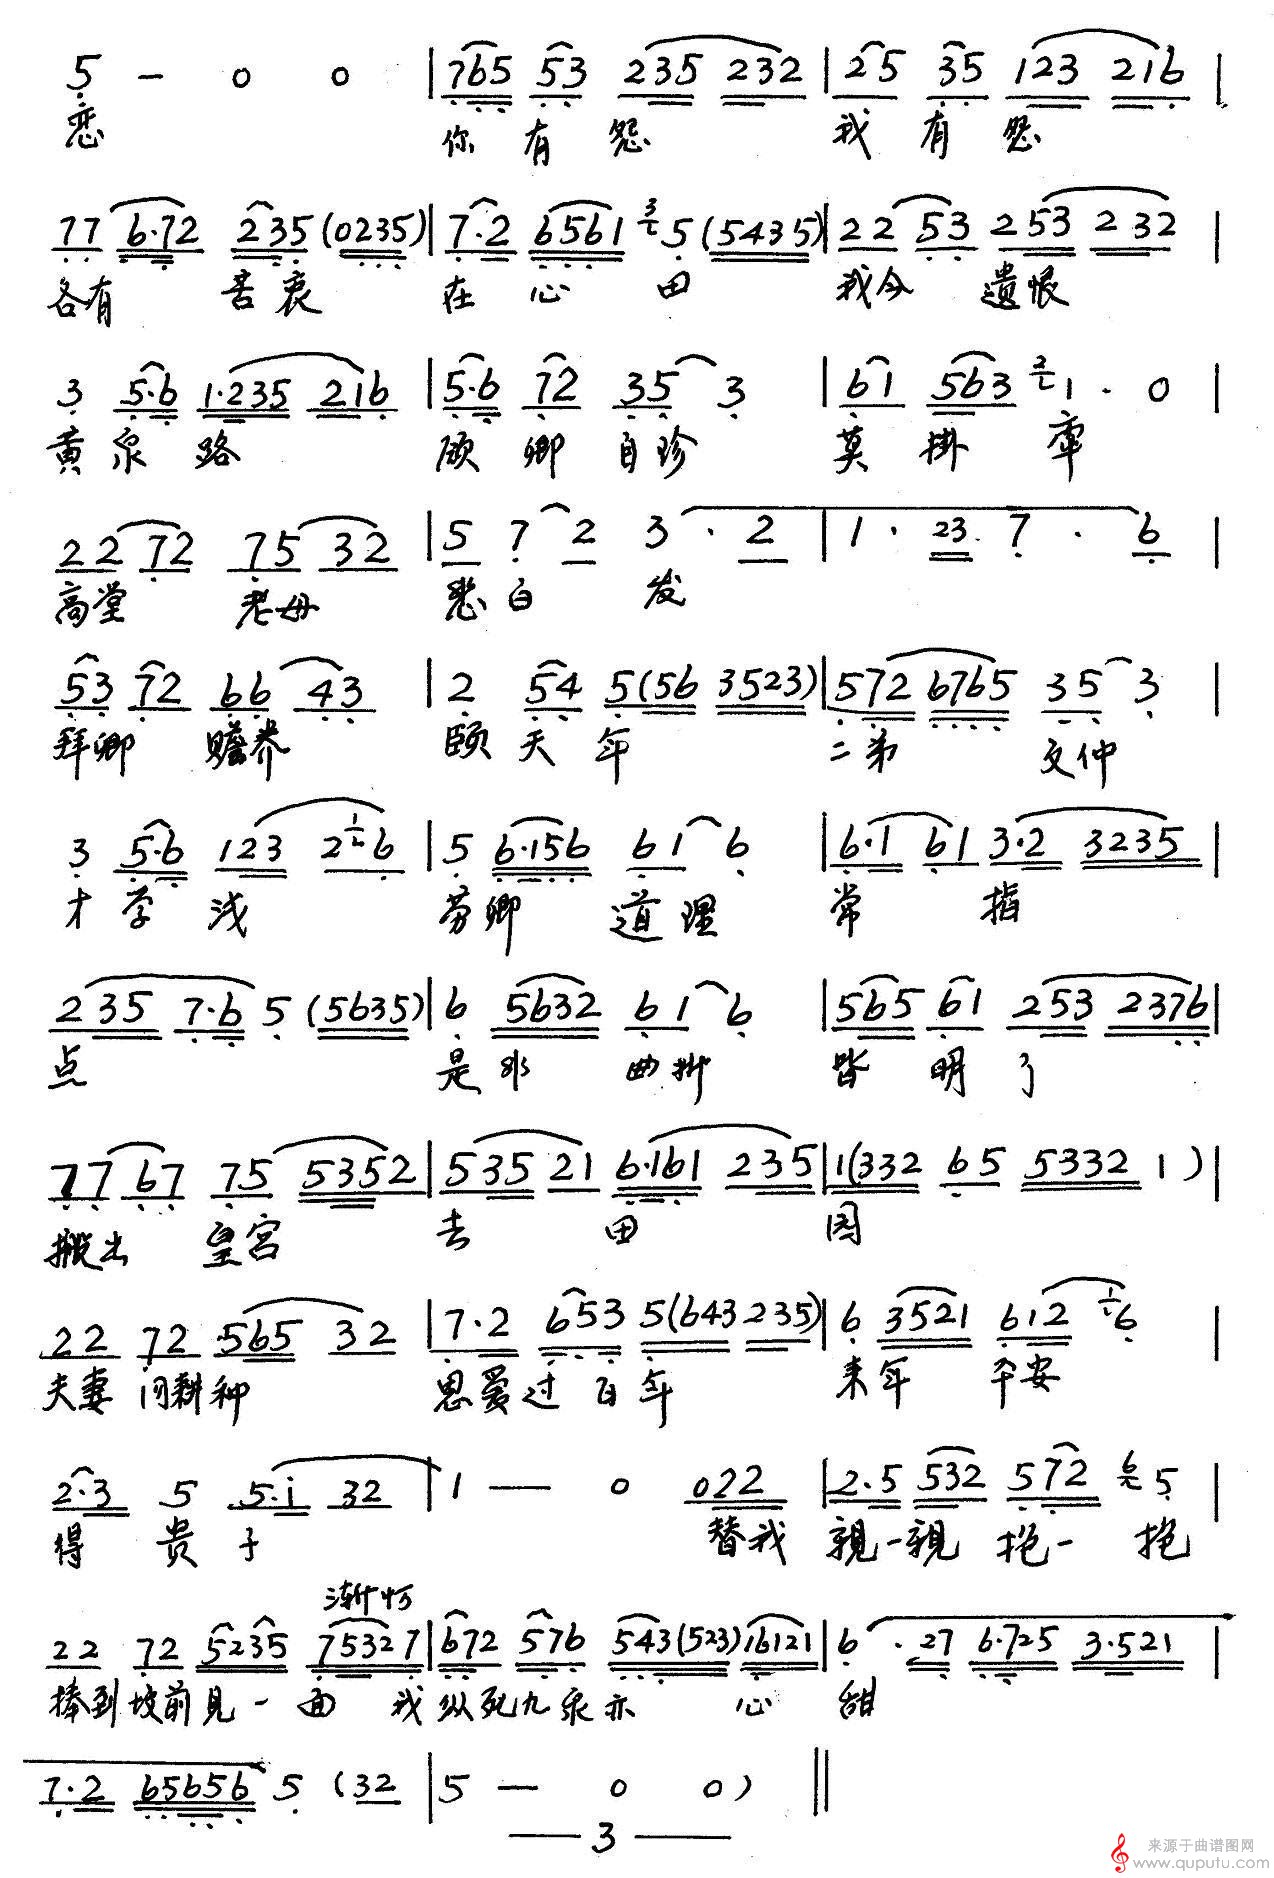 5 — 0 0 | 765 53 235 232 | 25 35 123 216 |
恋 你有怨 我有怨
77 6·72 235 (0235) | 7·2 6561 3 5 (5435) | 22 53 253 232 |
各有 苦衷 在心田 我今 遗恨
3 5·6 1·235 216 | 5·6 72 35 3 | 61 563 2 1· 0 |
黄泉路 愿卿自珍 莫掛牵
22 72 75 32 | 5 7 2 3 · 2 | 1 · 23 7 · 6 |
高堂 老母 愁白 发
53 72 66 43 | 2 54 5 (56 3523) | 572 6765 35 3 |
拜卿 赡养 颐天年 二弟 文仲
3 5·6 123 2 1 6 | 5 6·156 61 6 | 6·1 61 3·2 3235 |
才学浅 劳卿 道理 常 指
235 7·6 5 (5635) | 6 5632 61 6 | 565 61 253 2376 |
点 是非 曲折 皆明了
77 67 75 5352 | 535 21 6·161 235 | 1 (332 65 5332 1) |
搬出 皇宫 去 田 园
22 72 565 32 | 7·2 653 5 (643 235) | 6 3521 612 1 6
夫妻 同耕种 恩爱过百年 来年 平安
2·3 5 5·i 32 | 1 — 0 022 | 2·5 532 572 6 5 |
得 贵 子 替我 親一親 抱一 抱
渐慢
22 72 5235 75327 | 672 576 543 (523) 16121 | 6 · 27 6·725 3·521 |
捧到坡前見一面 我纵死九泉亦 心 甜
7·2 65656 5 (32 | 5 — 0 0) ‖
— 3 —
来源于曲谱图网
www.quputu.com